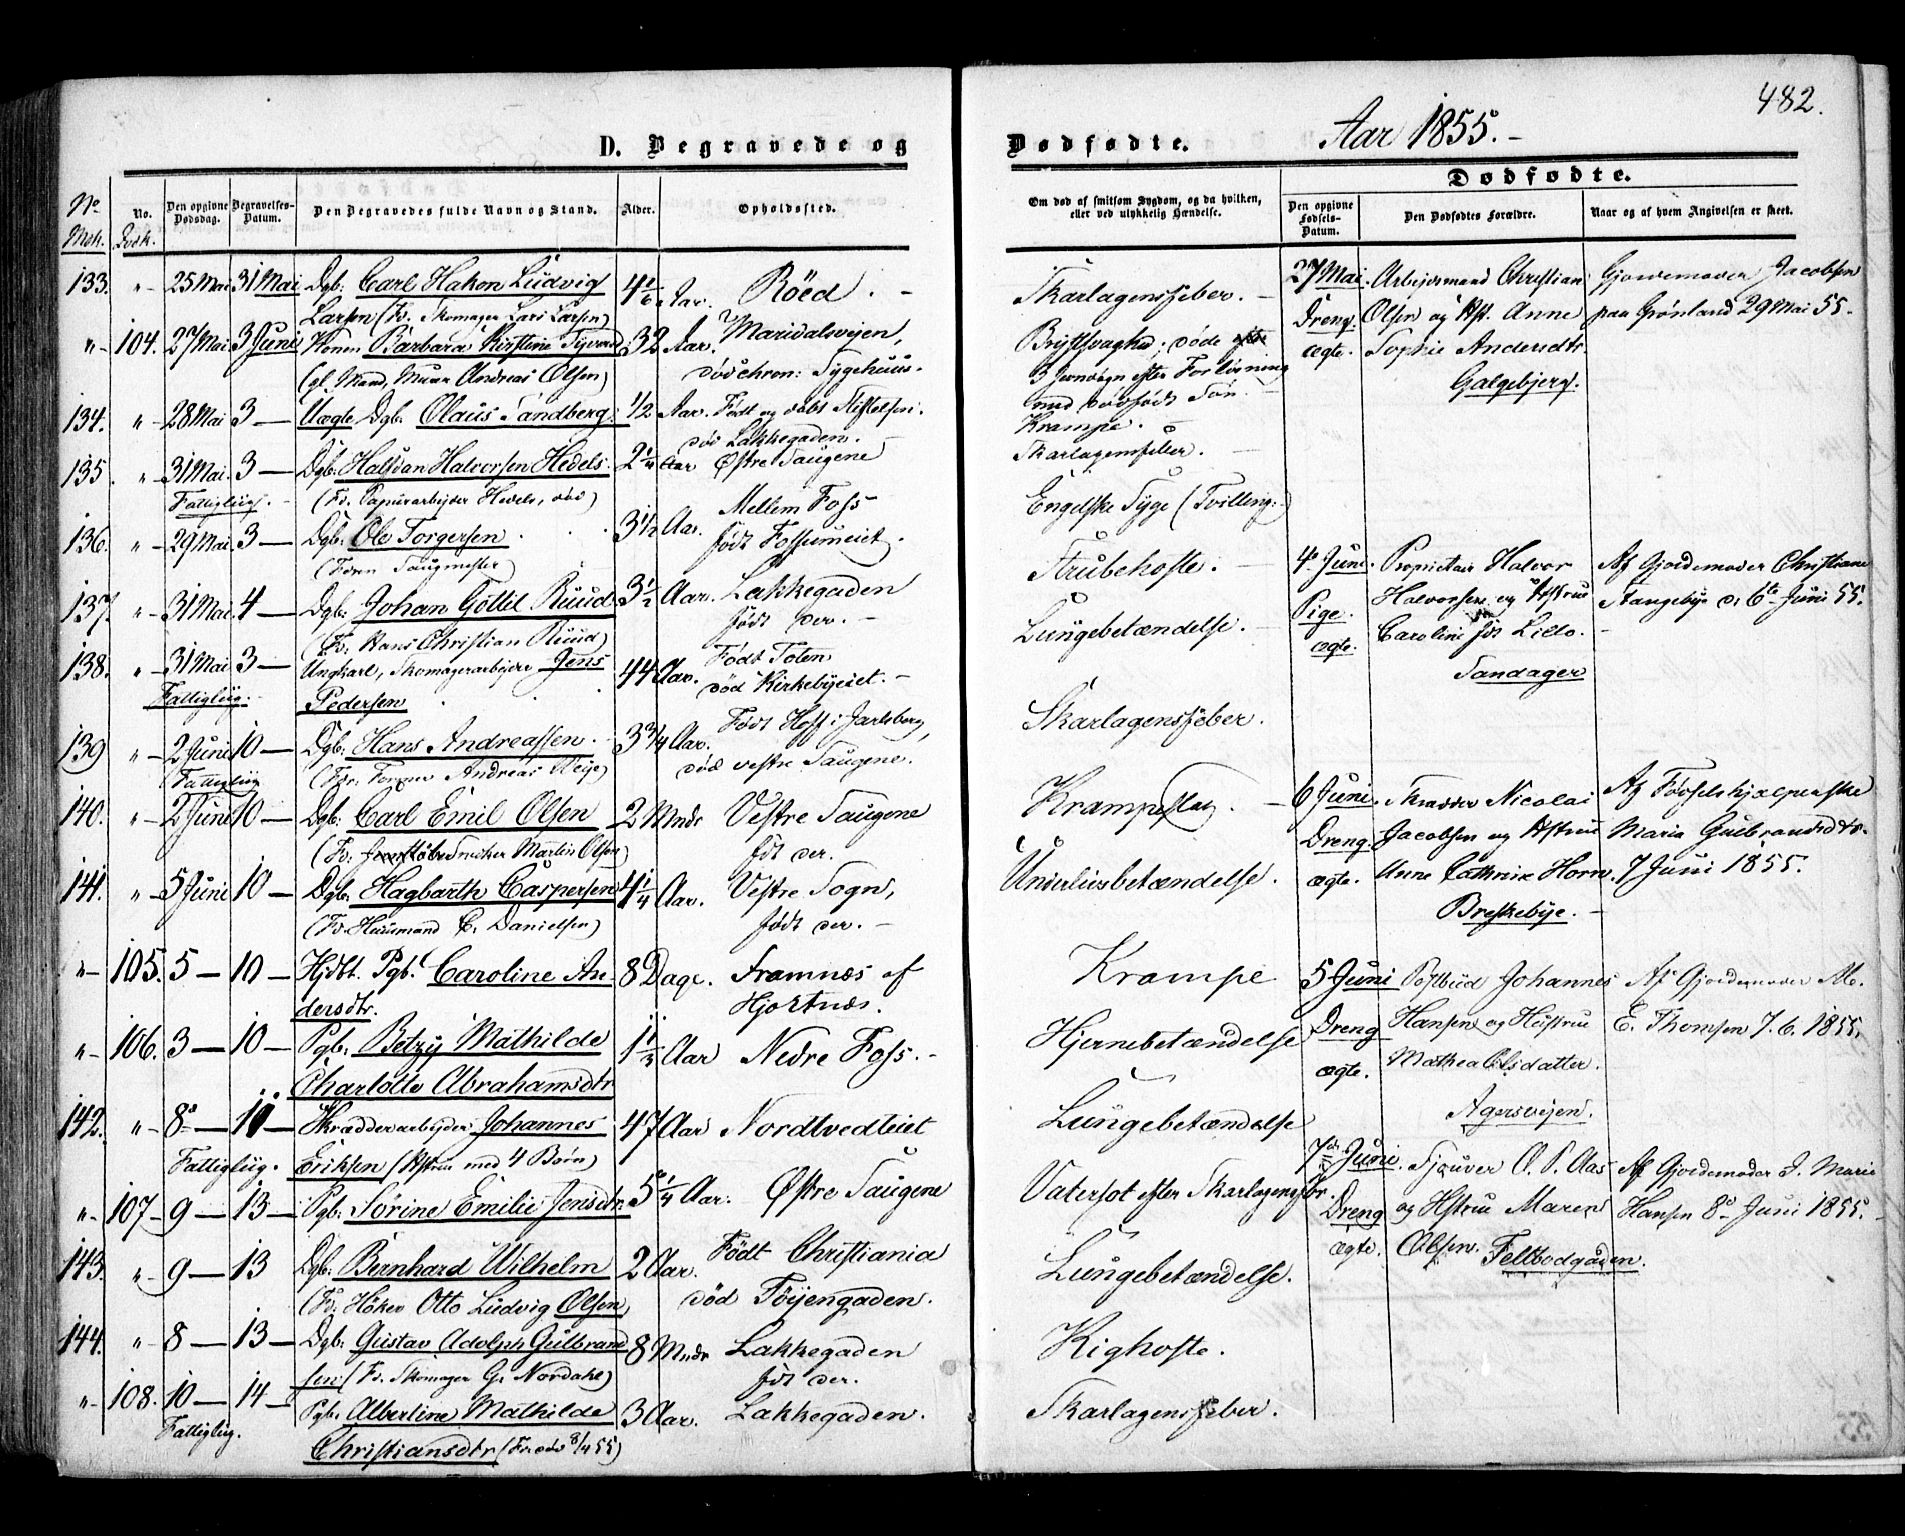 482.
D. Begravede og
Dødfødte.
Aar 1855.-
No
Mdk.
No.
Qvdk.
Den opgivne Dødsdag.
Begravelses-Datum.
Den Begravedes fulde Navn og Stand.
Alder.
Opholdssted.
Om død af smitsom Sygdom, og da hvilken, eller ved ulykkelig Hændelse.
Dødfødte.
Den opgivne Fødsels-Datum.
Den Dødfødtes Forældre.
Naar og af hvem Angivelsen er skeet.
133. " 25 Mai 31 Mai Dgb: Carl Hakon Ludvig 4 1/6 Aar. Røed. - Skarlagensfeber. -
Larsen (Fr. Skomager Lars Larsen)
" 104. 27 Mai 3 Juni Konen Barbara Kirstine 32 Aar. Maridalsveien, Brystsvaghed; døde
(gl. Mand, Murer Andreas Olsen) død chron: Sygehuus. 3 efter
med dødfødt Søn.
134. " 28 Mai 3 — Uægte Dgb. Olaus Sandberg. 1/2 Aar. Født og døbt Stiftelsen. Krampe.
død Lakkegaden. -
135. " 31 Mai. 3 — Dgb. Halfdan Halvorsen Hedels. 2 1/4 Aar Østre Saugene Skarlagensfeber.
Fattigliig. - (Fr. Papirarbejder Hedels, død)
136. " 29 Mai. 3 — Dgb: Ole Torgersen 3 1/2 Aar. Mellem Foss Engelske Syge (Tvilling:)
(Faren Saugmester) født Fossumeiet.
137. " 31 Mai. 4 — Dgb: Johan Gottil Ruud 3 1/2 Aar. Lakkegaden Strubehoste.
(Fr. Hans Christian Ruud) født der. -
138. " 31 Mai 3 — Ungkarl, Skomagerarbejder Jens 44 Aar. Født Toten Lungebetændelse.
Fattigliig. Pedersen død Kirkebyeiet. -
139 " 2 Juni 10 — Dgb: Hans Andreassen. 3 3/4 Aar. Født Hoff i Jarlsberg, Skarlagensfeber.
(Fattigliig (Far. Andreas død vestre Saugene.
140. " 2 Juni 10 — Dgb: Carl Emil Olsen 2 Mndr Vestre Saugene Krampeslag.
(Fr. Sniker Martin Olsen) fdt der.
141. " 5 Juni 10 — Dgb: Hagbarth Caspersen 4 1/4 Aar. Vestre Sogn, Underlivsbetændelse.
(Fr. Huusmand C. Danielsen) født der. -
" 105. 5 — 10 — Hjdbt. Pgb. Caroline An- 8 Dage. Framnæs af Krampe
dersdtr. Hjortnæs.
" 106. 3 — 10 — Pgb: Betzy Mathilde 1 1/2 Aar Nedre Foss. - Hjernebetændelse
Charlotte Abrahamsdtr
142. " 8 — 11 — Skrædderarbejder Johannes 47 Aar Nordtvedteiet Lungebetændelse
Fattigliig. Eriksen (Hstru med 4 Børn)
" 107 — 9 — 13 — Pgb: Sørine Emilie Jensdtr 5 1/4 Aar. Østre Saugene Vatersot efter Skarlagensfbr.
143. " 9 — 13 Dgb: Bernhard Wilhelm 2 Aar. Født Christiania Lungebetændelse.
(Fr. Høker Otto Ludvig Olsen, død Tøyengaden.
144. " 8 — 13 — Dgb: Gustav Adolph Gulbrand 8 Mndr Lakkegaden Kighoste.
sen (Fr. Skomager G. Nordahl) fdt der.
" 108. 10 — 14 — Pgb: Albertine Mathilde 3 Aar. Lakkegaden. Skarlagensfeber.
Fattigliig. Christiansdtr (Far død 8/4 55)
27 Mai. Arbejdsmand Christian Gjordemoder Jacobsen
Dreng. Olsen og Hst. Anne paa Grønland 29 Mai 55.
ægte. Sophie Andersdtr.
Galgebjerg.
4 Juni. Proprietair Halvor Af Gjordemoder Christiane
Pige. Halvorsen og Hstru Stangebye d: 6te Juni 55.
ægte. Caroline fdt Lillo.
Sandager
6 Juni. Skrædder Nicolai Af Fødselshjælperske
Dreng. Jacobsen og Hstru Maria Gulbrandsdtr.
ægte. Anne Cathrine Horn. 7 Juni 1855.
Breskebye. -
5 Juni Postbud Johannes Af Gjordemoder M.
Dreng Hansen og Hustru E. Thomsen 7.6. 1855.
ægte. Mathea Olsdatter.
Agersveien.
7de Juni. Sjouver O. P. Aas Af Gjordemoder J. Marie
Dreng og Hstru Maren Hansen 8 Juni 1855.
ægte. Olsen. Feltbodgaden.